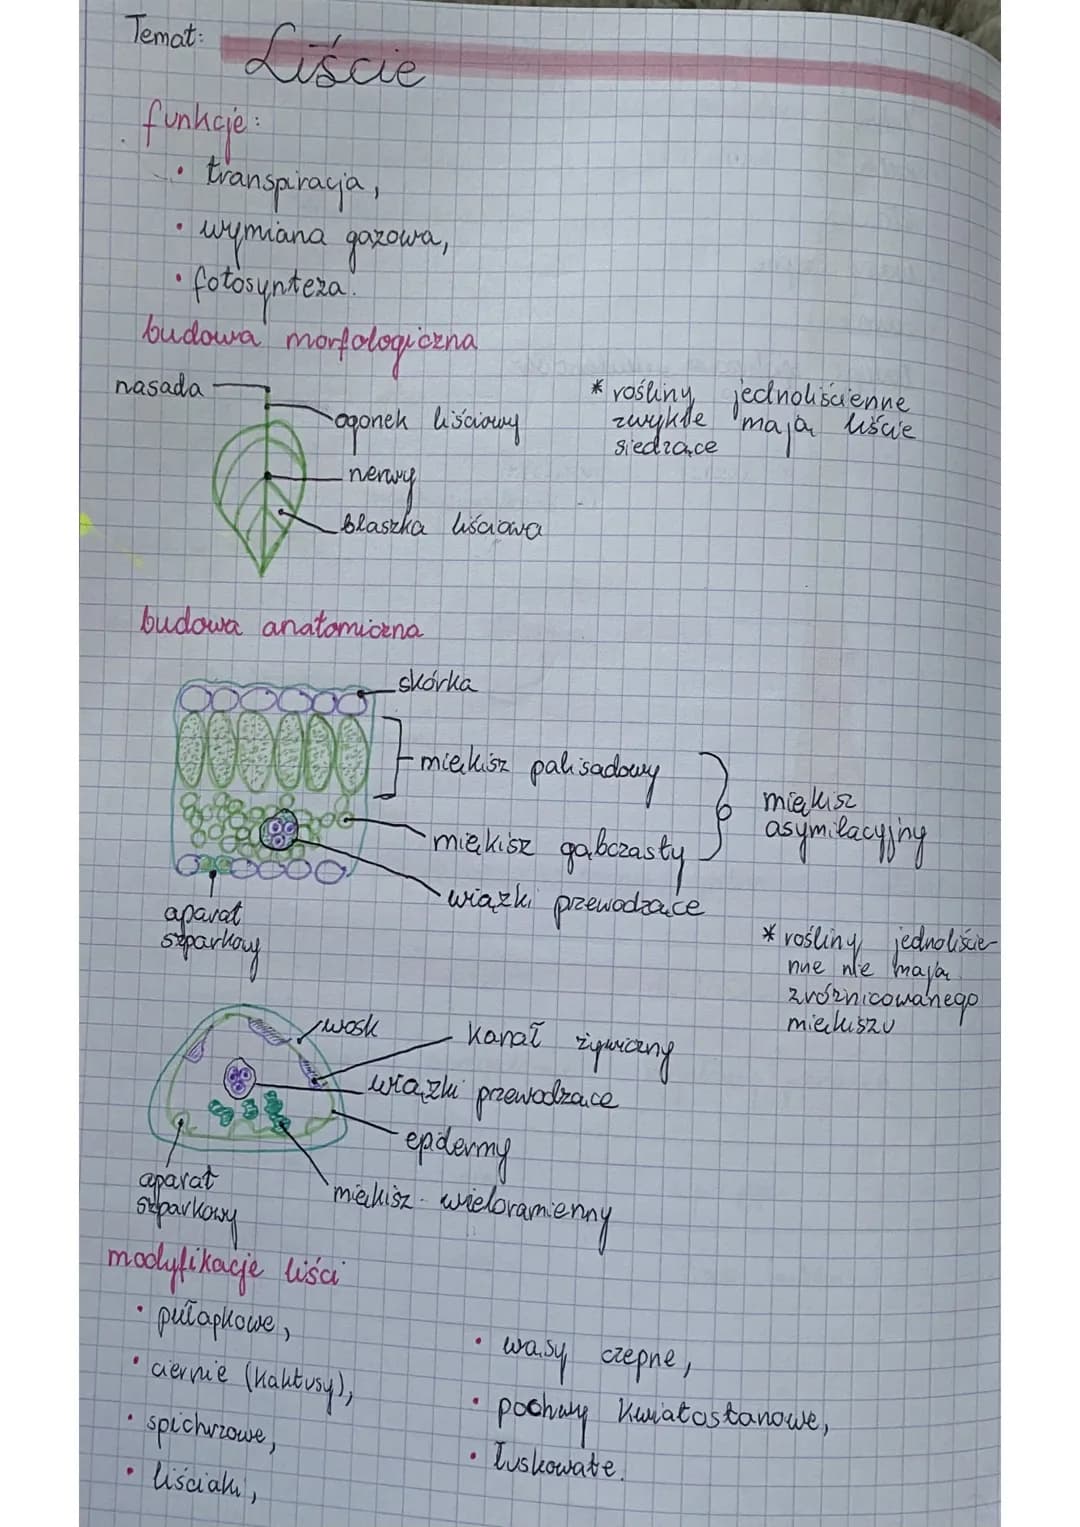 Temat:
Liście
funkcje:
• transpiracja,
• wymiana gazowa,
• fotosynteza.
budowa morfologiczna
nasada
ogonek liściowy
nerwy
blaszka liściowa
* rośliny jednoliścienne
zwykle mają liście
siedzące
budowa anatomiczna
skórka
miękisz palisadowy
miękisz gąbczasty
miękisz
asymilacyjny
wiązki przewodzące
aparat
szparkowy
* rośliny jednoliście-
nne nie mają
zróżnicowanego
miękiszu
wosk
kanał żywiczny
wiązki przewodzące
epidermy
miękisz wieloramienny
aparat
szparkowy
modyfikacje liści
• pułapkowe,
• ciernie (kaktusy),
• spichrzowe,
• liściaki,
• wąsy czepne,
• pochwy kwiatostanowe,
• łuskowate.